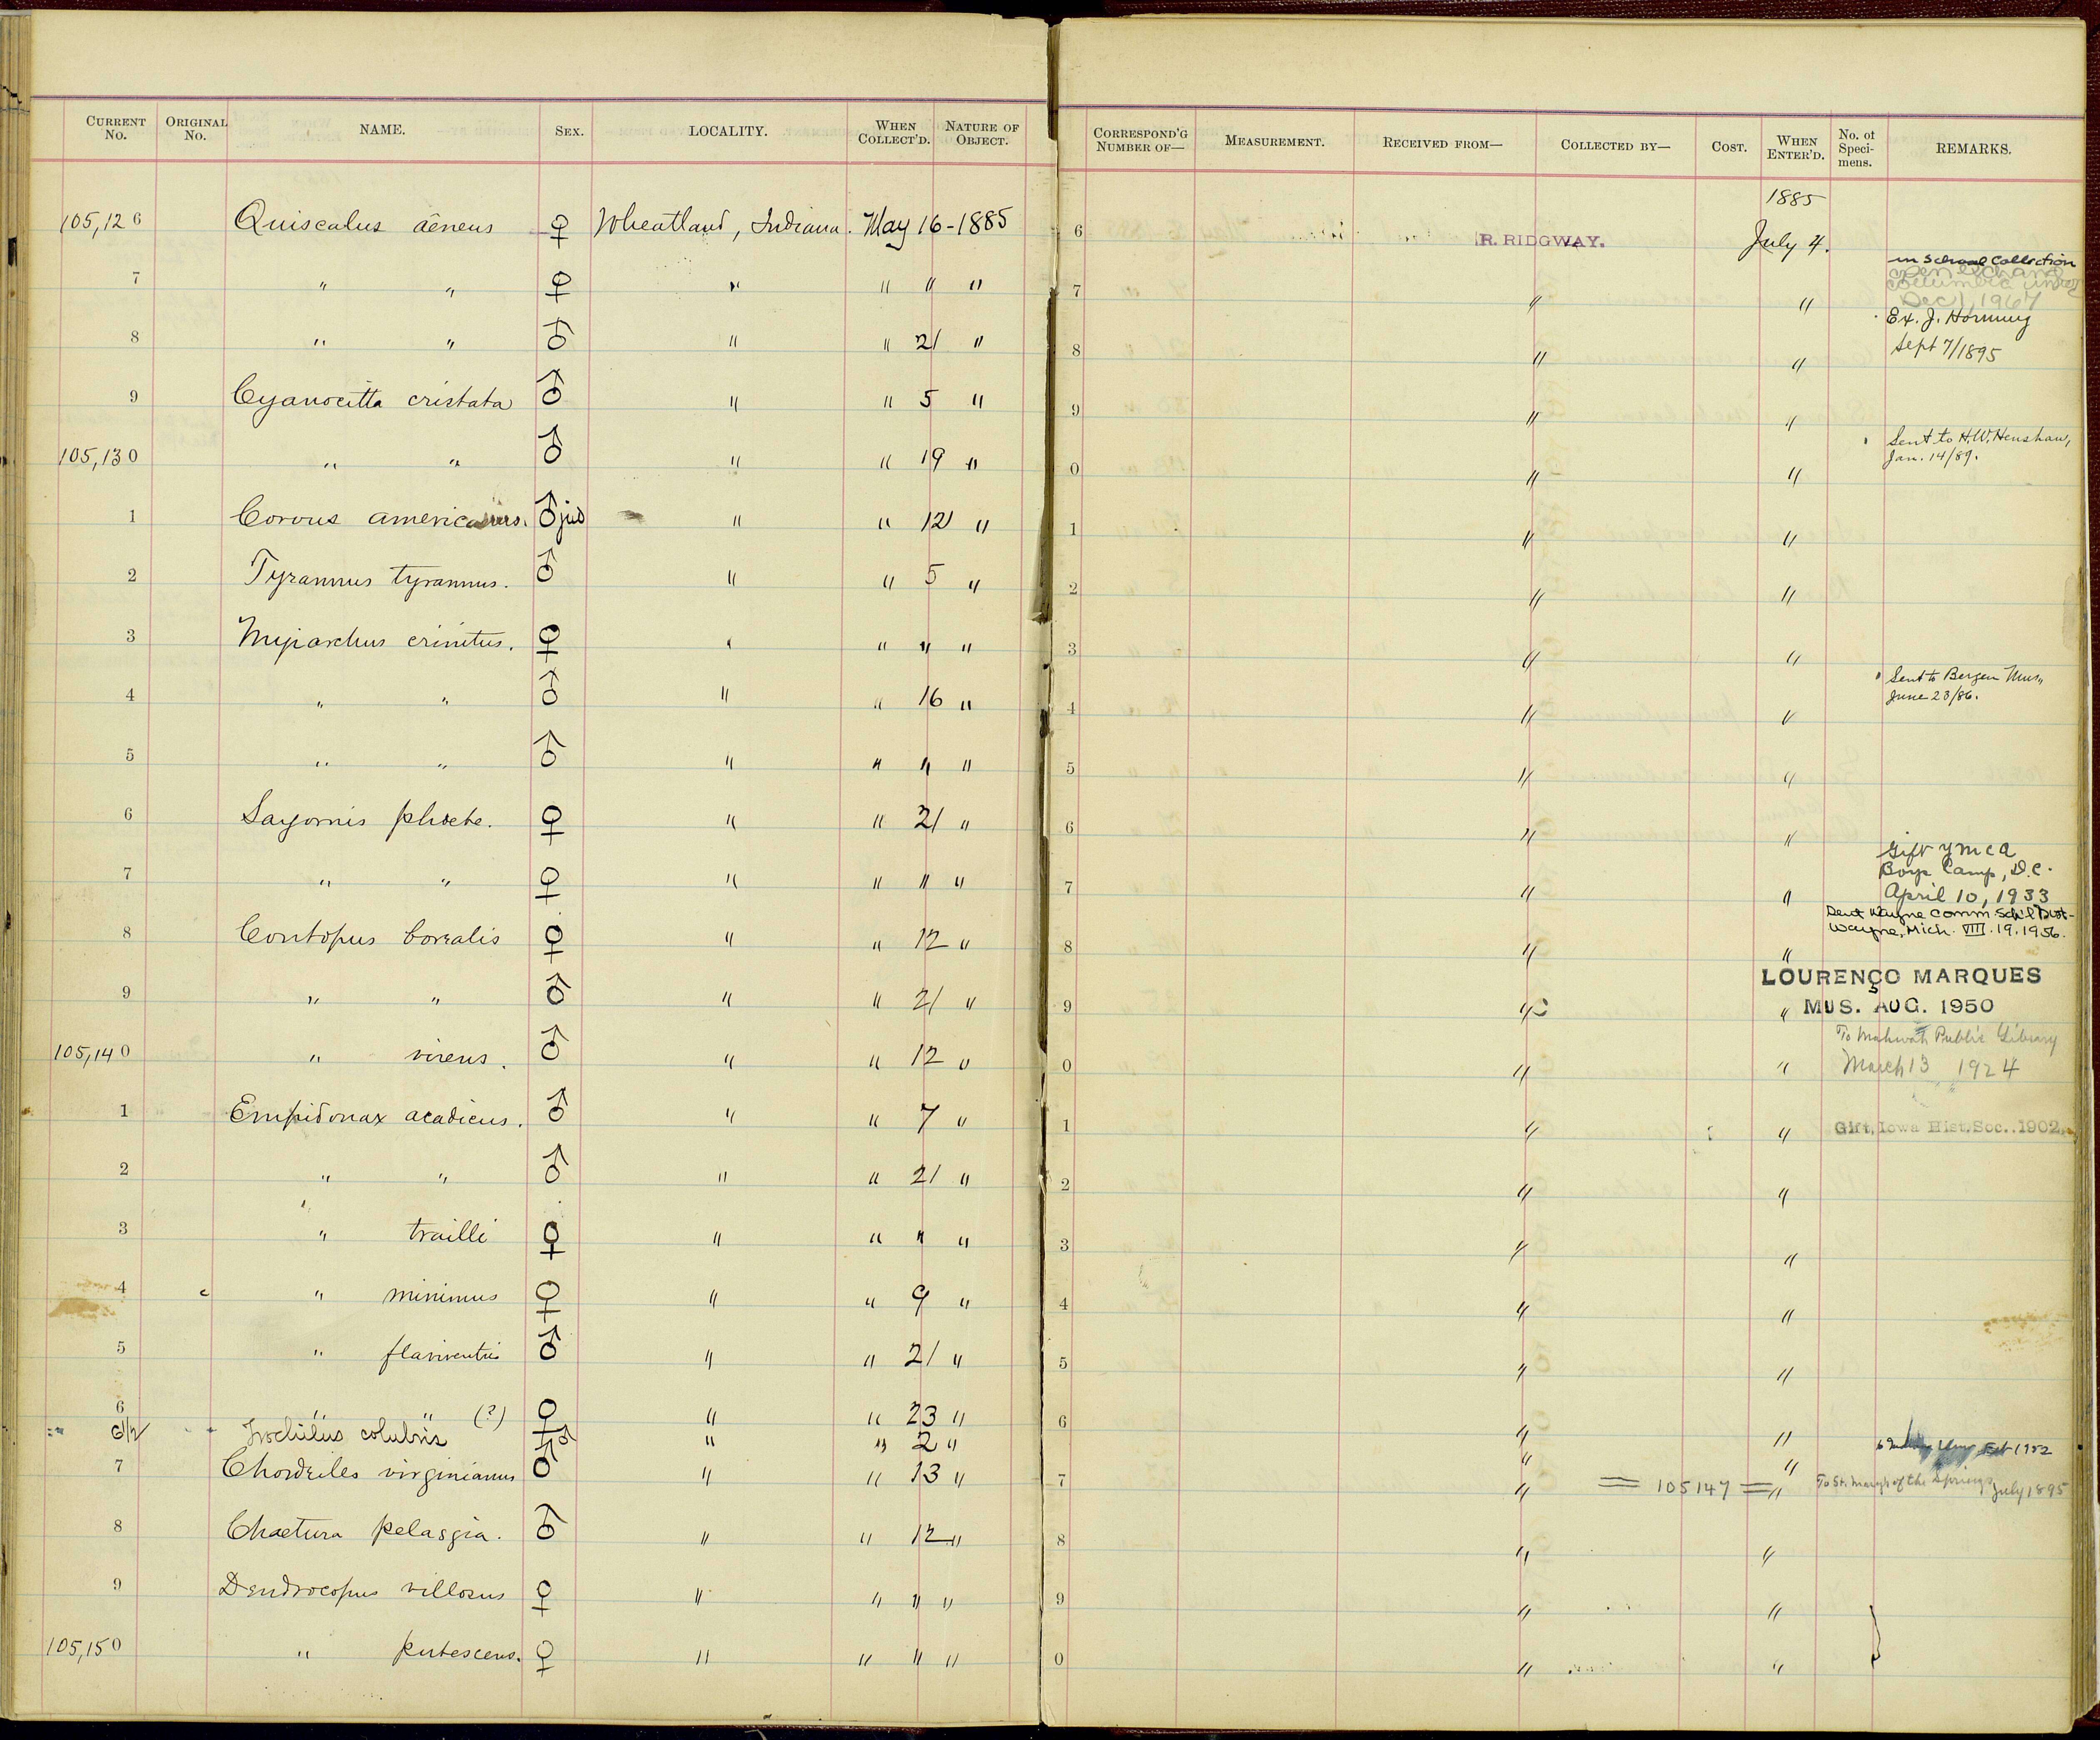 CURRENT No. ORIGINAL No. NAME. SEX. LOCALITY. WHEN COLLECT'D. NATURE OF OBJECT. CORRESPOND'G NUMBER OF— MEASUREMENT. RECEIVED FROM— COLLECTED BY— COST. WHEN ENTER'D. No. of Speci-mens. REMARKS.
1885
105,126 Quiscalus aeneus ♀ Wheatland, Indiana. May 16-1885 6 R. RIDGWAY. July 4.
in School Collection
7 " " ♀ " " " " 7 " "
Dec 1, 1967
Ex. J. Hornung
8 " " ♂ " " 21 " 8 " " Sept 7/1895
9 Cyanocitta cristata ♂ " " 5 " 9 " "
105,130 " " ♂ " " 19 " 0 " " Sent to H.W. Henshaw,
Jan. 14/89.
1 Corvus americanus. ♂ juv " " 12 " 1 " "
2 Tyrannus tyrannus. ♂ " " 5 " 2 " "
3 Myiarchus crinitus. ♀ " " " " 3 " "
4 " " ♂ " " 16 " 4 " " Sent to Bergen Mus.,
June 23/86.
5 " " ♂ " " " " 5 " "
6 Sayornis phoebe. ♀ " " 21 " 6 " "
Gift YMCA
Boys Camp, D.C.
7 " " ♀ " " " " 7 " " April 10, 1933
Sent Wayne Comm. Sch'l Dist-
Wayne, Mich. VIII.19.1956.
8 Contopus borealis ♀ " " 12 " 8 " "
LOURENÇO MARQUES
9 " " ♂ " " 21 " 9 " " MUS. AUG. 1950
To Mahwah Public Library
105,140 " virens. ♂ " " 12 " 0 " " March 13 1924
1 Empidonax acadicus. ♂ " " 7 " 1 " " Gift, Iowa Hist. Soc..1902.
2 " " ♂ " " 21 " 2 " "
3 " trailli ♀ " " " " 3 " "
4 " minimus ♀ " " 9 " 4 " "
5 " flaviventris ♂ " " 21 " 5 " "
6 " " (?) ♀ " " 23 " 6 " "
6 1/2 Trochilus colubris ♂ " " 2 " " " 1952
7 Chordeiles virginianus ♂ " " 13 " 7 " = 105147 = " To St. Mary's of the Springs, July 1895
8 Chaetura pelasgia. ♂ " " 12 " 8 " "
9 Dendrocopus villosus ♀ " " " " 9 " "
105,150 " pubescens. ♀ " " " " 0 " "